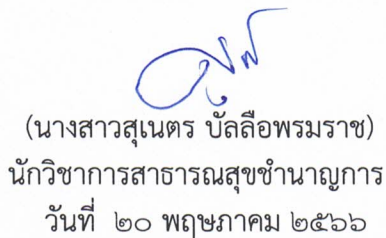 (นางสาวสุเนตร บัลลือพรมราช)
นักวิชาการสาธารณสุขชำนาญการ
วันที่ ๒๐ พฤษภาคม ๒๕๖๖